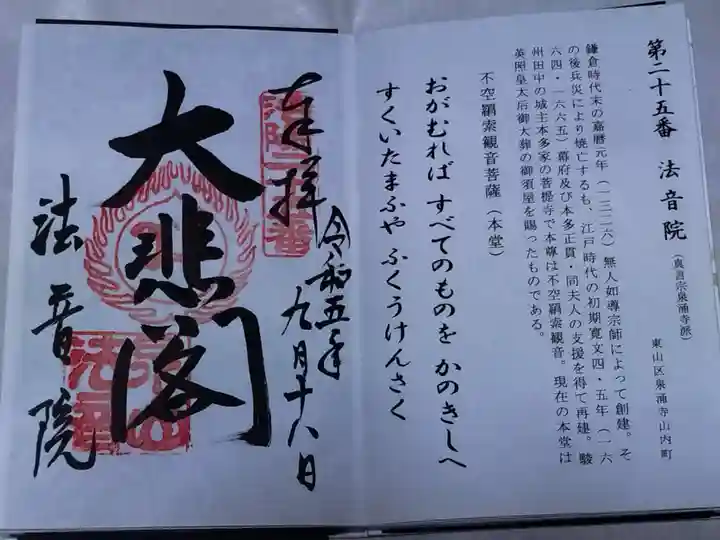 第二十五番 法音院
（真言宗泉涌寺派）
東山区泉涌寺山内町
鎌倉時代末の嘉暦元年（一三二六）無人如導宗師によって創建。そ
の後兵災により焼亡するも、江戸時代の初期寛文四・五年（一六
六四・一六六五）幕府及び本多正貫・同夫人の支援を得て再建。駿
州田中の城主本多家の菩提寺で本尊は不空羂索観音。現在の本堂は
英照皇太后御大葬の御須屋を賜ったものである。
不空羂索観音菩薩（本堂）
おがむれば すべてのものを かのきしへ
すくいたまふや ふくうけんさく
令和五年
九月十八日
奉拝
大悲閣
法音院